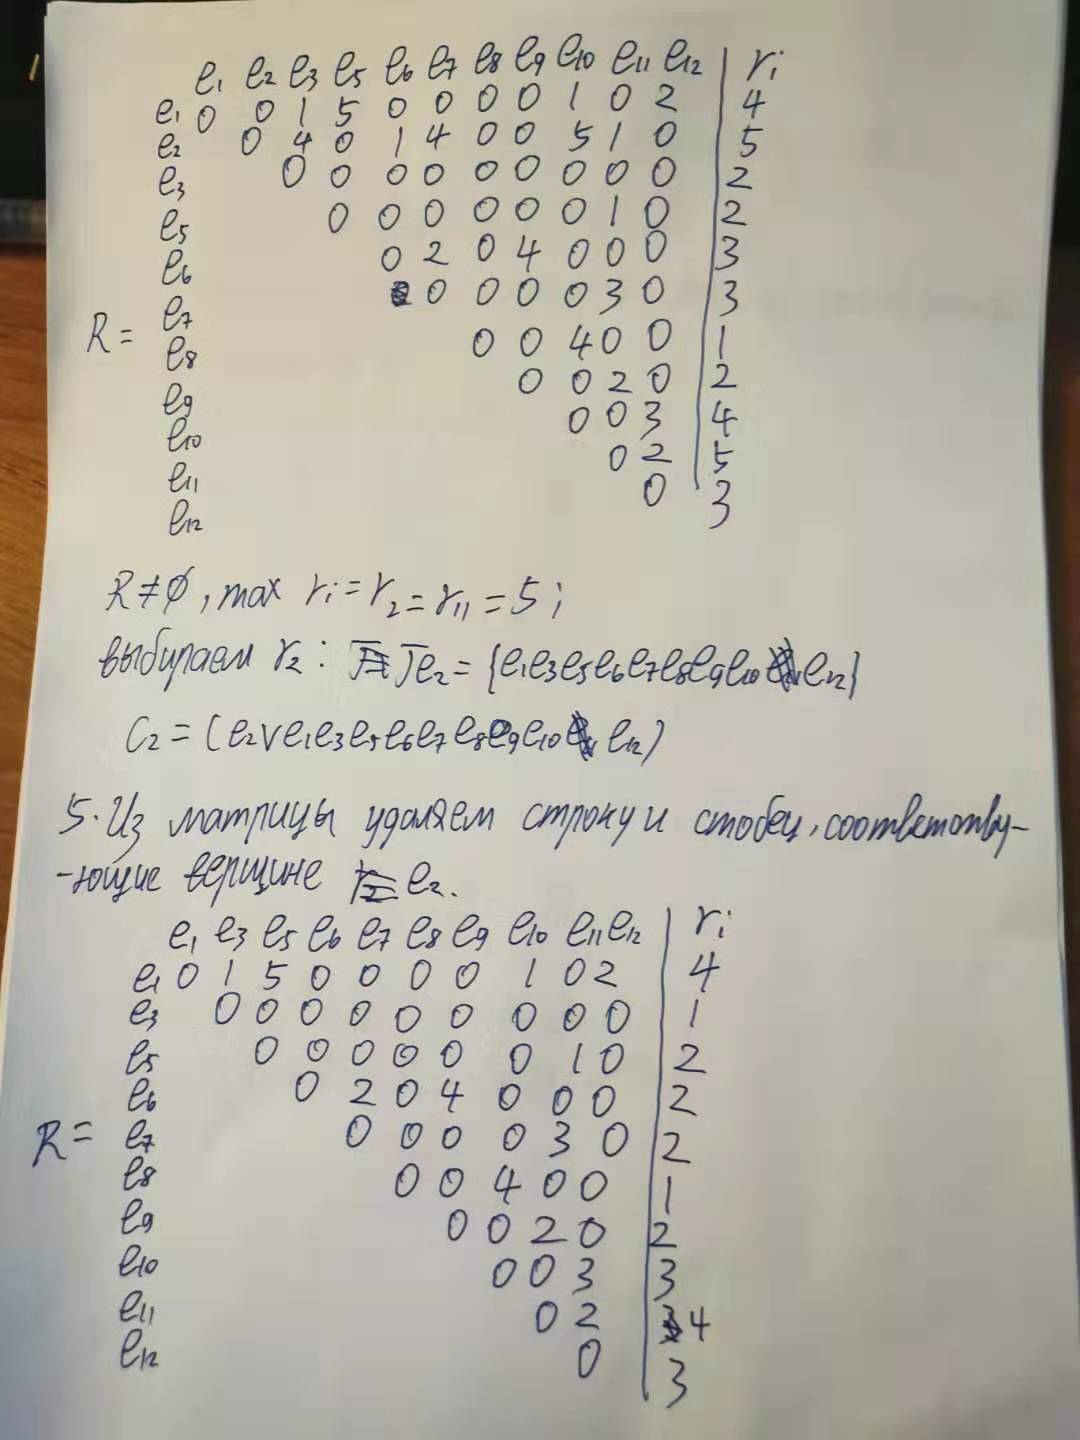 e₁ e₂ e₃ e₅ e₆ e₇ e₈ e₉ e₁₀ e₁₁ e₁₂ | rᵢ
e₁ 0 0 1 5 0 0 0 0 1 0 2 | 4
e₂ 0 4 0 1 4 0 0 5 1 0 | 5
e₃ 0 0 0 0 0 0 0 0 0 | 2
e₅ 0 0 0 0 0 0 1 0 | 2
e₆ 0 2 0 4 0 0 0 | 3
e₇ 0 0 0 0 3 0 | 3
R = e₈ 0 0 4 0 0 | 1
e₉ 0 0 2 0 | 2
e₁₀ 0 0 3 | 4
e₁₁ 0 2 | 5
e₁₂ 0 3
R ≠ ∅, max rᵢ = r₂ = r₁₁ = 5;
выбираем r₂: Гe₂ = {e₁e₃e₅e₆e₇e₈e₉e₁₀e₁₂}
C₂ = (e₂ v e₁e₃e₅e₆e₇e₈e₉e₁₀ e₁₂)
5. Из матрицы удаляем строку и стобец, соответству-
-ющие вершине e₂.
e₁ e₃ e₅ e₆ e₇ e₈ e₉ e₁₀ e₁₁ e₁₂ | rᵢ
e₁ 0 1 5 0 0 0 0 1 0 2 | 4
e₃ 0 0 0 0 0 0 0 0 0 | 1
e₅ 0 0 0 0 0 0 1 0 | 2
e₆ 0 2 0 4 0 0 0 | 2
R = e₇ 0 0 0 0 3 0 | 2
e₈ 0 0 4 0 0 | 1
e₉ 0 0 2 0 | 2
e₁₀ 0 0 3 | 3
e₁₁ 0 2 | 4
e₁₂ 0 | 3